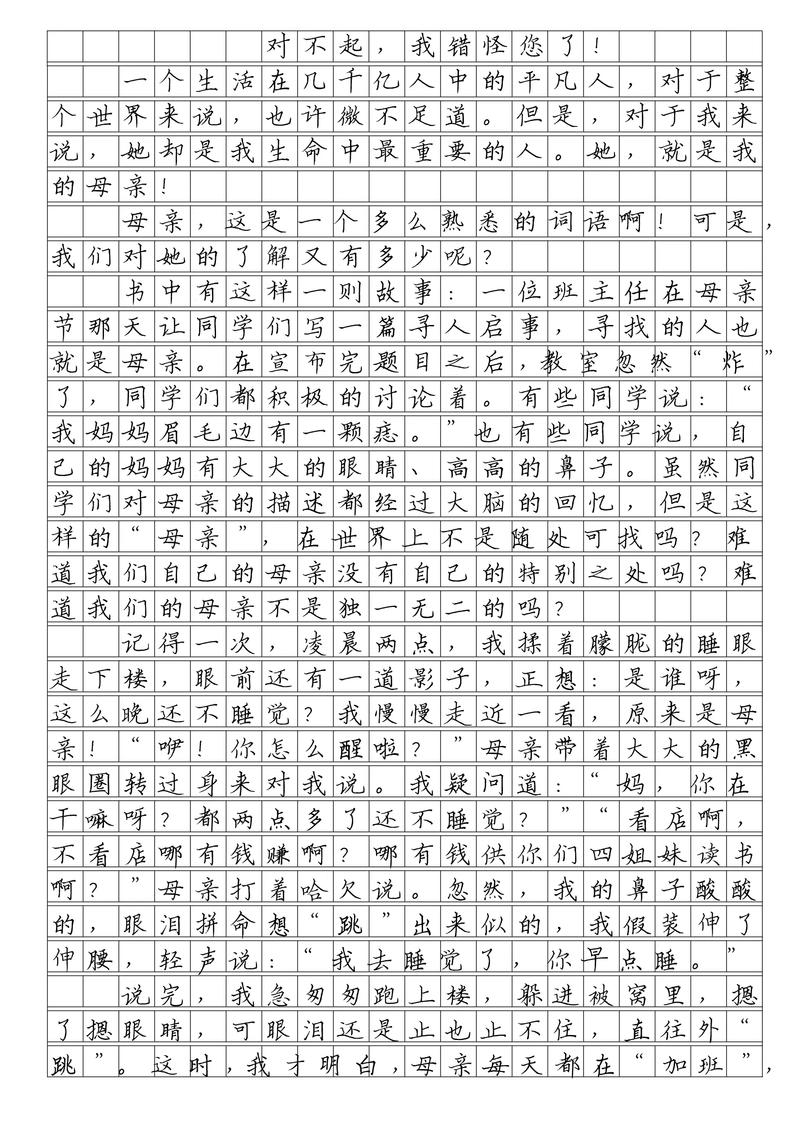 对不起，我错怪您了！
一个生活在几千亿人中的平凡人，对于整
个世界来说，也许微不足道。但是，对于我来
说，她却是我生命中最重要的人。她，就是我
的母亲！
母亲，这是一个多么熟悉的词语啊！可是，
我们对她的了解又有多少呢？
书中有这样一则故事：一位班主任在母亲
节那天让同学们写一篇寻人启事，寻找的人也
就是母亲。在宣布完题目之后，教室忽然“炸”
了，同学们都积极的讨论着。有些同学说：“
我妈妈眉毛边有一颗痣。”也有些同学说，自
己的妈妈有大大的眼睛、高高的鼻子。虽然同
学们对母亲的描述都经过大脑的回忆，但是这
样的“母亲”，在世界上不是随处可找吗？难
道我们自己的母亲没有自己的特别之处吗？难
道我们的母亲不是独一无二的吗？
记得一次，凌晨两点，我揉着朦胧的睡眼
走下楼，眼前还有一道影子，正想：是谁呀，
这么晚还不睡觉？我慢慢走近一看，原来是母
亲！“咿！你怎么醒啦？”母亲带着大大的黑
眼圈转过身来对我说。我疑问道：“妈，你在
干嘛呀？都两点多了还不睡觉？”“看店啊，
不看店哪有钱赚啊？哪有钱供你们四姐妹读书
啊？”母亲打着哈欠说。忽然，我的鼻子酸酸
的，眼泪拼命想“跳”出来似的，我假装伸了
伸腰，轻声说：“我去睡觉了，你早点睡。”
说完，我急匆匆跑上楼，躲进被窝里，摁
了摁眼睛，可眼泪还是止也止不住，直往外“
跳”。这时，我才明白，母亲每天都在“加班”，